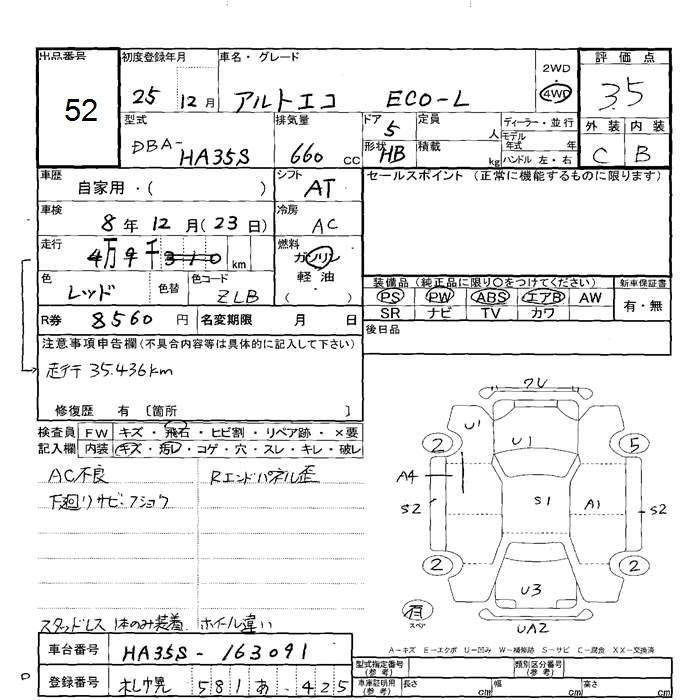 出品番号
52
初度登録年月
25 12月
車名・グレード
アルトエコ ECO-L
2WD
4WD
評価点
3.5
外装 内装
C B
型式
DBA-HA35S
排気量
660 cc
ドア 5
形状 HB
定員 人
積載 kg
ディーラー・並行
モデル年式 年
ハンドル 左・右
車歴
自家用・( )
シフト
AT
車検
8年12月(23日)
冷房
AC
走行
4万9千310 km
燃料
ガソリン
軽油
( )
色
レッド
色替
色コード
ZLB
R券 8560円
名変期限 月 日
セールスポイント (正常に機能するものに限ります)
装備品 (純正品に限り〇をつけてください)
新車保証書
PS PW ABS エアB AW
SR ナビ TV カワ
有・無
後日品
注意事項申告欄(不具合内容等は具体的に記入して下さい)
走行 35.436km
修復歴 有 〔箇所 〕
検査員記入欄
FW キズ・飛石・ヒビ割・リペア跡・×要
内装 キズ・汚レ・コゲ・穴・スレ・キレ・破レ
AC不良
Rエンドパネル歪
下廻りサビ・フショク
スタッドレス 1本のみ装着 ホイール違い
ワレ
U1
2
U1
5
A4
S2
S1
A1
S2
2
U3
2
有
スペア
UA2
A-キズ E-エクボ U-凹み W-補修跡 S-サビ C-腐食 XX-交換済
車台番号
HA35S-163091
登録番号
札幌 581 あ・425
型式指定番号
(参考)
類別区分番号
(参考)
車庫証明用
(参考)
長さ cm
幅 cm
高さ cm